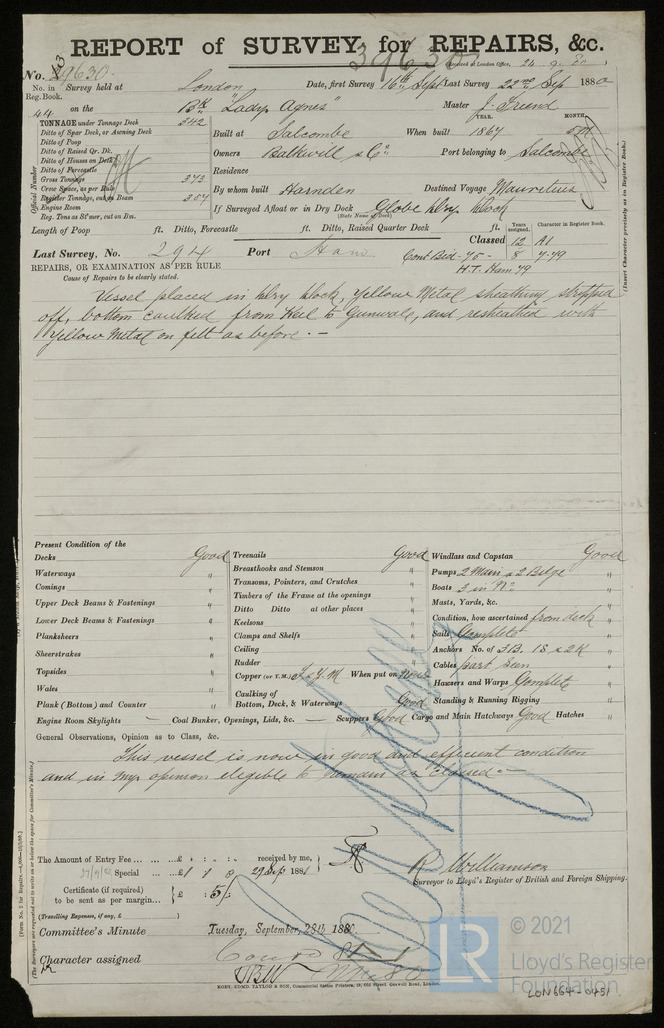 REPORT of SURVEY for REPAIRS, &c.
39630
Received at London Office, 24. 9. 80
No. 39630. Survey held at London Date, first Survey 16th Sept Last Survey 22nd Sep 1880
No. in Reg. Book.
44 on the Bk "Lady Agnes" Master J. Friend
TONNAGE under Tonnage Deck 342
Ditto of Spar Deck, or Awning Deck
Ditto of Poop
Ditto of Raised Qr. Dk.
Ditto of Houses on Deck
Ditto of Forecastle
Gross Tonnage 373
Crew Space, as per Rule
Register Tonnage, cut on Beam 357
Engine Room
Reg. Tons as St'mer, cut on Bm.
Official Number
Built at Salcombe When built YEAR. 1867 MONTH. 5m
Owners Balkwill & Co. Port belonging to Salcombe
Residence
By whom built Harnden Destined Voyage Mauritius
If Surveyed Afloat or in Dry Dock Globe Dry Dock
(State Name of Dock)
(Insert Character precisely as in Register Book.)
Length of Poop ft. Ditto, Forecastle ft. Ditto, Raised Quarter Deck ft.
Years assigned. Character in Register Book.
Classed 12 A1
Last Survey, No. 294 Port Ham Cont Bid-75- 8 7-79
H.T. Ham. 79
REPAIRS, OR EXAMINATION AS PER RULE
Cause of Repairs to be clearly stated.
Vessel placed in Dry Dock, Yellow Metal sheathing stripped
off, bottom caulked from Keel to Gunwale, and resheathed with
Yellow Metal on felt as before. —
Present Condition of the
Decks Good
Waterways "
Comings "
Upper Deck Beams & Fastenings "
Lower Deck Beams & Fastenings "
Planksheers "
Sheerstrakes "
Topsides "
Wales "
Plank (Bottom) and Counter "
Treenails Good
Breasthooks and Stemson "
Transoms, Pointers, and Crutches "
Timbers of the Frame at the openings "
Ditto Ditto at other places "
Keelsons "
Clamps and Shelfs "
Ceiling "
Rudder "
Copper (or Y.M.) F & Y.M When put on Now
Caulking of
Bottom, Deck, & Waterways Good
Windlass and Capstan Good
Pumps 2 Main & 2 Bilge "
Boats 3 in No "
Masts, Yards, &c. "
Condition, how ascertained from deck
Sails Complete "
Anchors No. of 3B. 1S & 2K "
Cables part seen "
Hawsers and Warps Complete "
Standing & Running Rigging "
Engine Room Skylights — Coal Bunker, Openings, Lids, &c. — Scuppers Good Cargo and Main Hatchways Good Hatches "
General Observations, Opinion as to Class, &c.
This vessel is now in good and efficient condition
and in my opinion eligible to remain as classed —
The Amount of Entry Fee ... ... £ : : received by me,
Special ... ... £ 1 : 1 : 0 29 Sep 1880
Certificate (if required) to be sent as per margin... £ : 5/-
(Travelling Expenses, if any, £ )
R Williamson
Surveyor to Lloyd's Register of British and Foreign Shipping.
Committee's Minute Tuesday, September, 28th 1880.
Character assigned
KOBY, EDMD. TAYLOR & SON, Commercial Steam Printers, 19, Old Street, Goswell Road, London.
© 2021
LR
Lloyd's Register
Foundation
LON664-0451